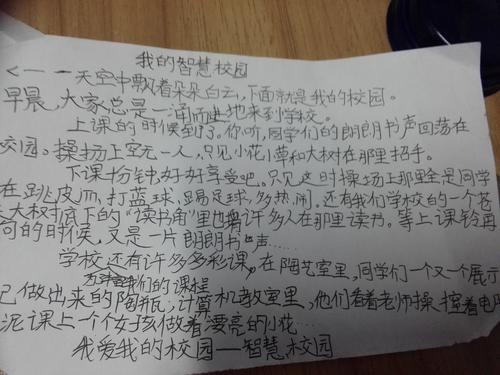 我的智慧校园
<一一天空中飘着朵朵白云,下面就是我的校园。
早晨,大家总是一涌而进地来到学校。
上课的时候到了。你听,同学们的朗朗书声回荡在
校园。操场上空无一人,只见小花小草和大树在那里招手。
下课十分钟,好好享受吧。只见这时操场上那全是同学
在跳皮巾,打蓝球,踢足球,多热闹。还有我们学校的一个
大树底下的“读书角”里也有许多人在那里读书。等上课铃再
向的时候,又是一片朗朗书声……
学校还有许多多彩课,在陶艺室里,同学们一又一个展示
我们的课程
己做出来的陶瓶;计算机教室里,他们看着老师操控着电
泥课上一个个女孩做着漂亮的小花…
我爱我的校园——智慧校园